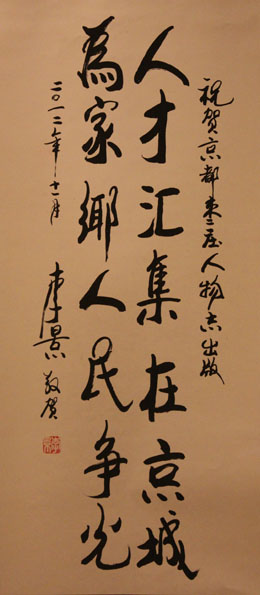 祝贺京都枣庄人物志出版
人才汇集在京城
為家鄉人民争光
二〇一二年十一月
李景 敬贺